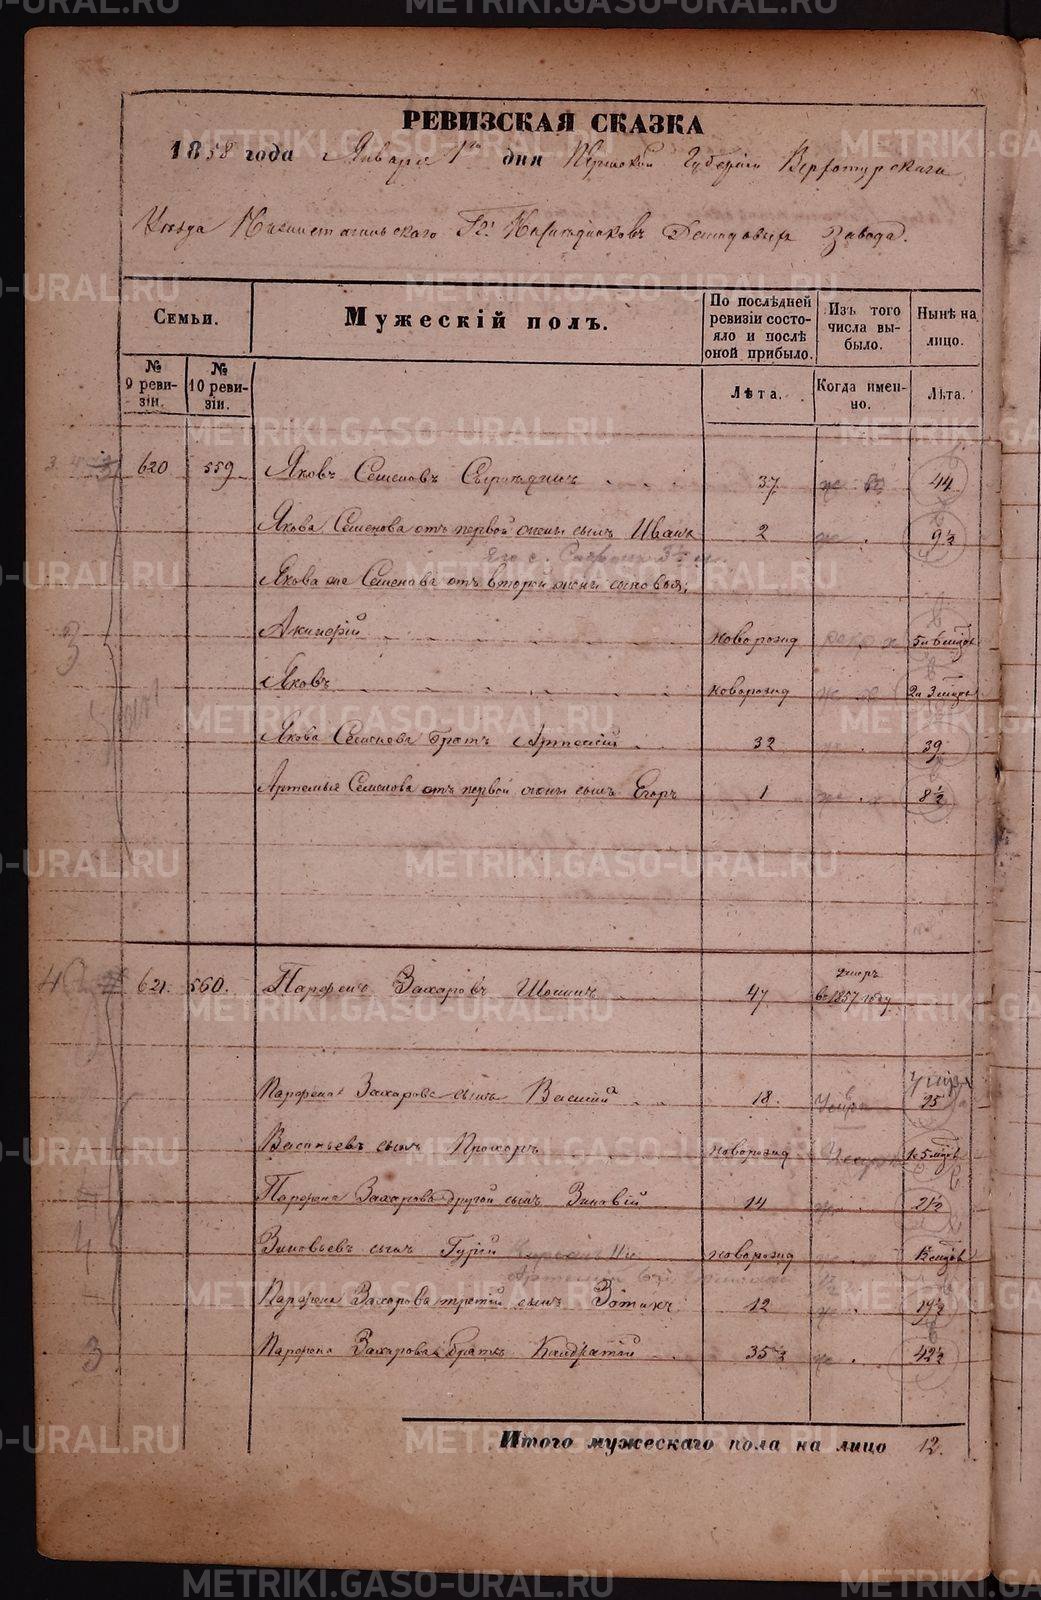 РЕВИЗСКАЯ СКАЗКА
1858 года Января 1го дня Пермской Губернии Верхотурскаго
Уѣзда Нижнетагильскаго Гг. Наслѣдниковъ Демидовыхъ Завода.
Семьи.
Мужескій полъ.
По послѣдней ревизіи состояло и послѣ оной прибыло.
Изъ того числа выбыло.
Нынѣ на лицо.
№ 9 ревизіи.
№ 10 ревизіи.
Лѣта.
Когда именно.
Лѣта.
620 559 Яковъ Семеновъ 37 44
Якова Семенова отъ первой жены сынъ Иванъ 2 9½
Якова же Семенова отъ второй жены сыновья;
новорожд 5 и 6 мѣся
Яковъ новорожд 2 и 3 мѣся
Якова Семенова братъ Артемій 32 39
Артемья Семенова отъ первой жены сынъ Егоръ 1 8½
621. 560. Парфенъ Захаровъ 47 умеръ въ 1857 году
Парфена Захарова сынъ Василій 18. 25
Васильевъ сынъ Прохоръ новорожд
Парфена Захарова другой сынъ Зиновій 14 21½
Зиновьевъ сынъ Гурій новорожд
Парфена Захарова третій сынъ Зотикъ 12 19½
Парфена Захарова братъ Кондратій 35 42½
Итого мужескаго пола на лицо 12.
METRIKI.GASO-URAL.RU